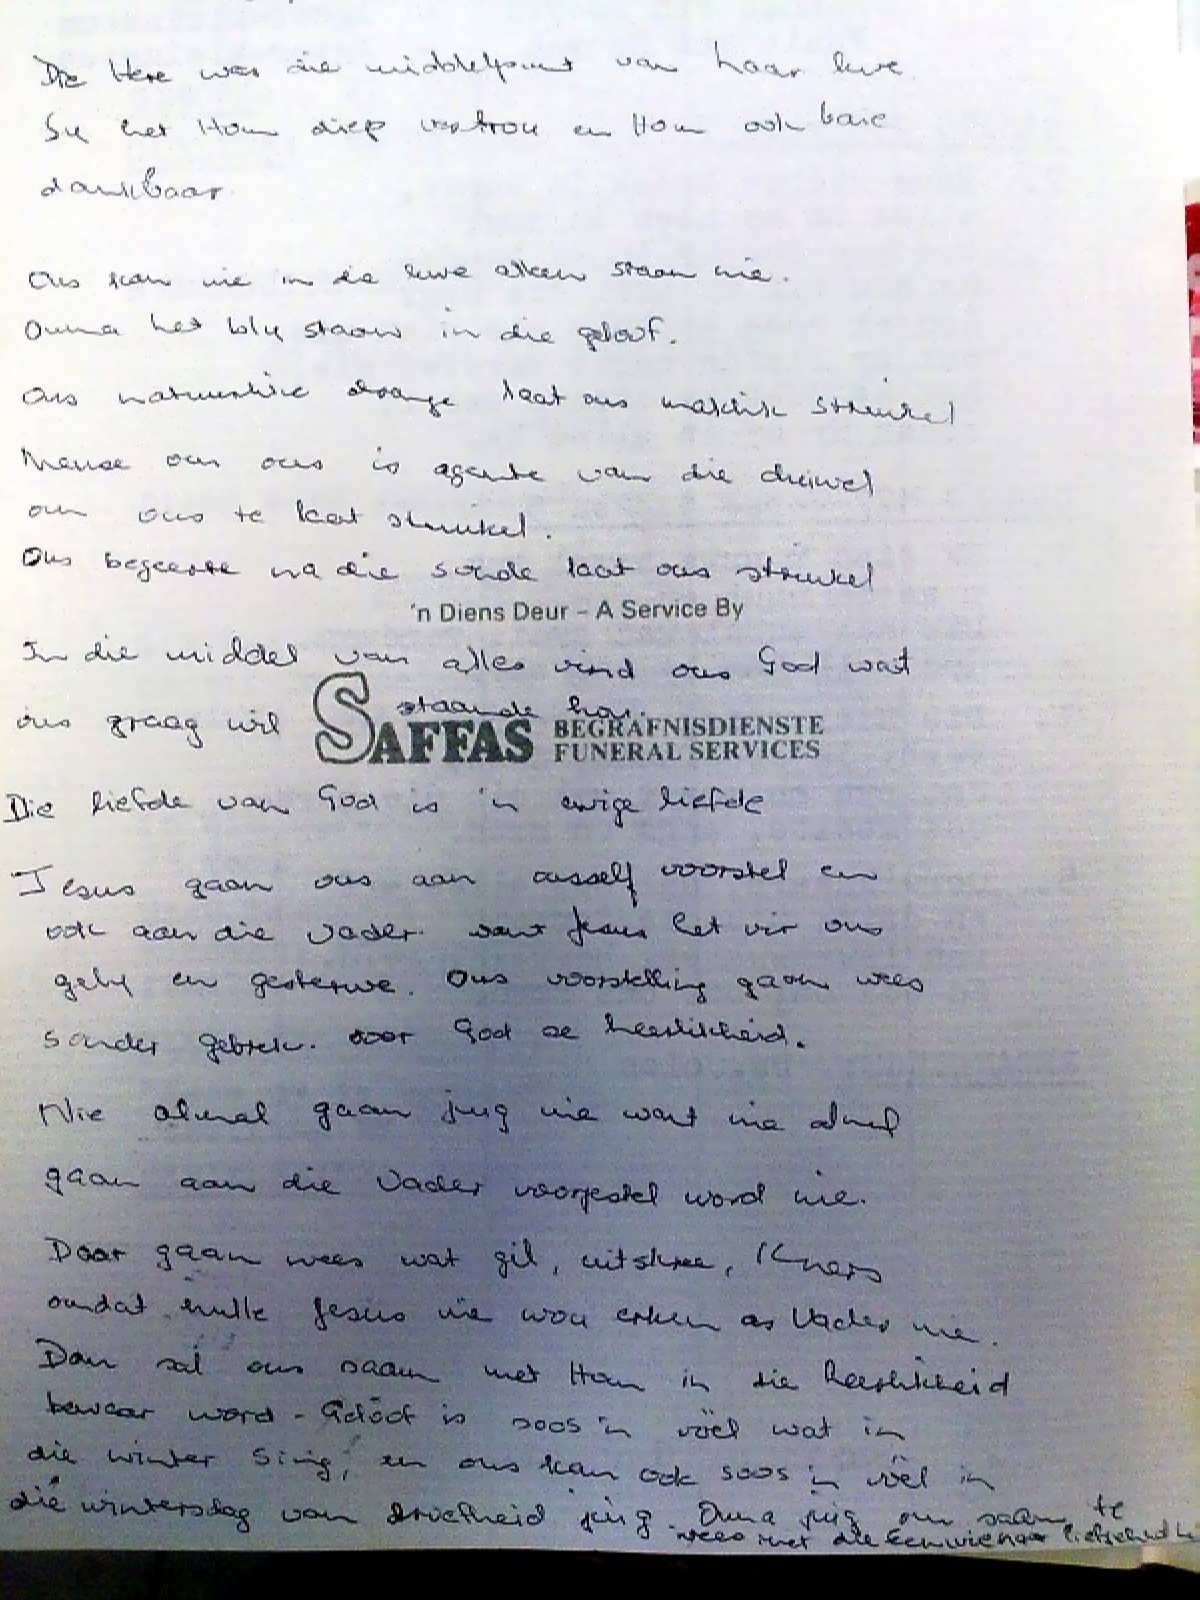 Die Here was die middelpunt van haar lewe.
Sy het Hom diep vertrou en Hom ook baie
dankbaar.
Ons kan nie in die lewe alleen staan nie.
Ouma het bly staan in die geloof.
Ons natuurlike drange laat ons maklik struikel
Mense om ons is agente van die duiwel
om ons te laat struikel.
Ons begeerte na die sonde laat ons struikel
'n Diens Deur – A Service By
In die middel van alles vind ons God wat
ons graag wil staande hou.
SAFFAS BEGRAFNISDIENSTE
FUNERAL SERVICES
Die liefde van God is 'n ewige liefde
Jesus gaan ons aan ousself voorstel en
ook aan die Vader. want Jesus het vir ons
gely en gesterwe. Ons voorstelling gaan wees
sonder gebrek. voor God se heerlikheid.
Nie almal gaan jug nie want nie almal
gaan aan die Vader voorgestel word nie.
Daar gaan wees wat gil, uitskree, kners
omdat hulle Jesus nie wou erken as Vader nie.
Dan sal ons saam met Hom in die heerlikheid
bewaar word - Geloof is soos 'n voël wat in
die winter sing, en ons kan ook soos 'n voël in
die wintersdag van droefheid jug. Ouma jug om saam te
wees met die Een wie haar liefgehad